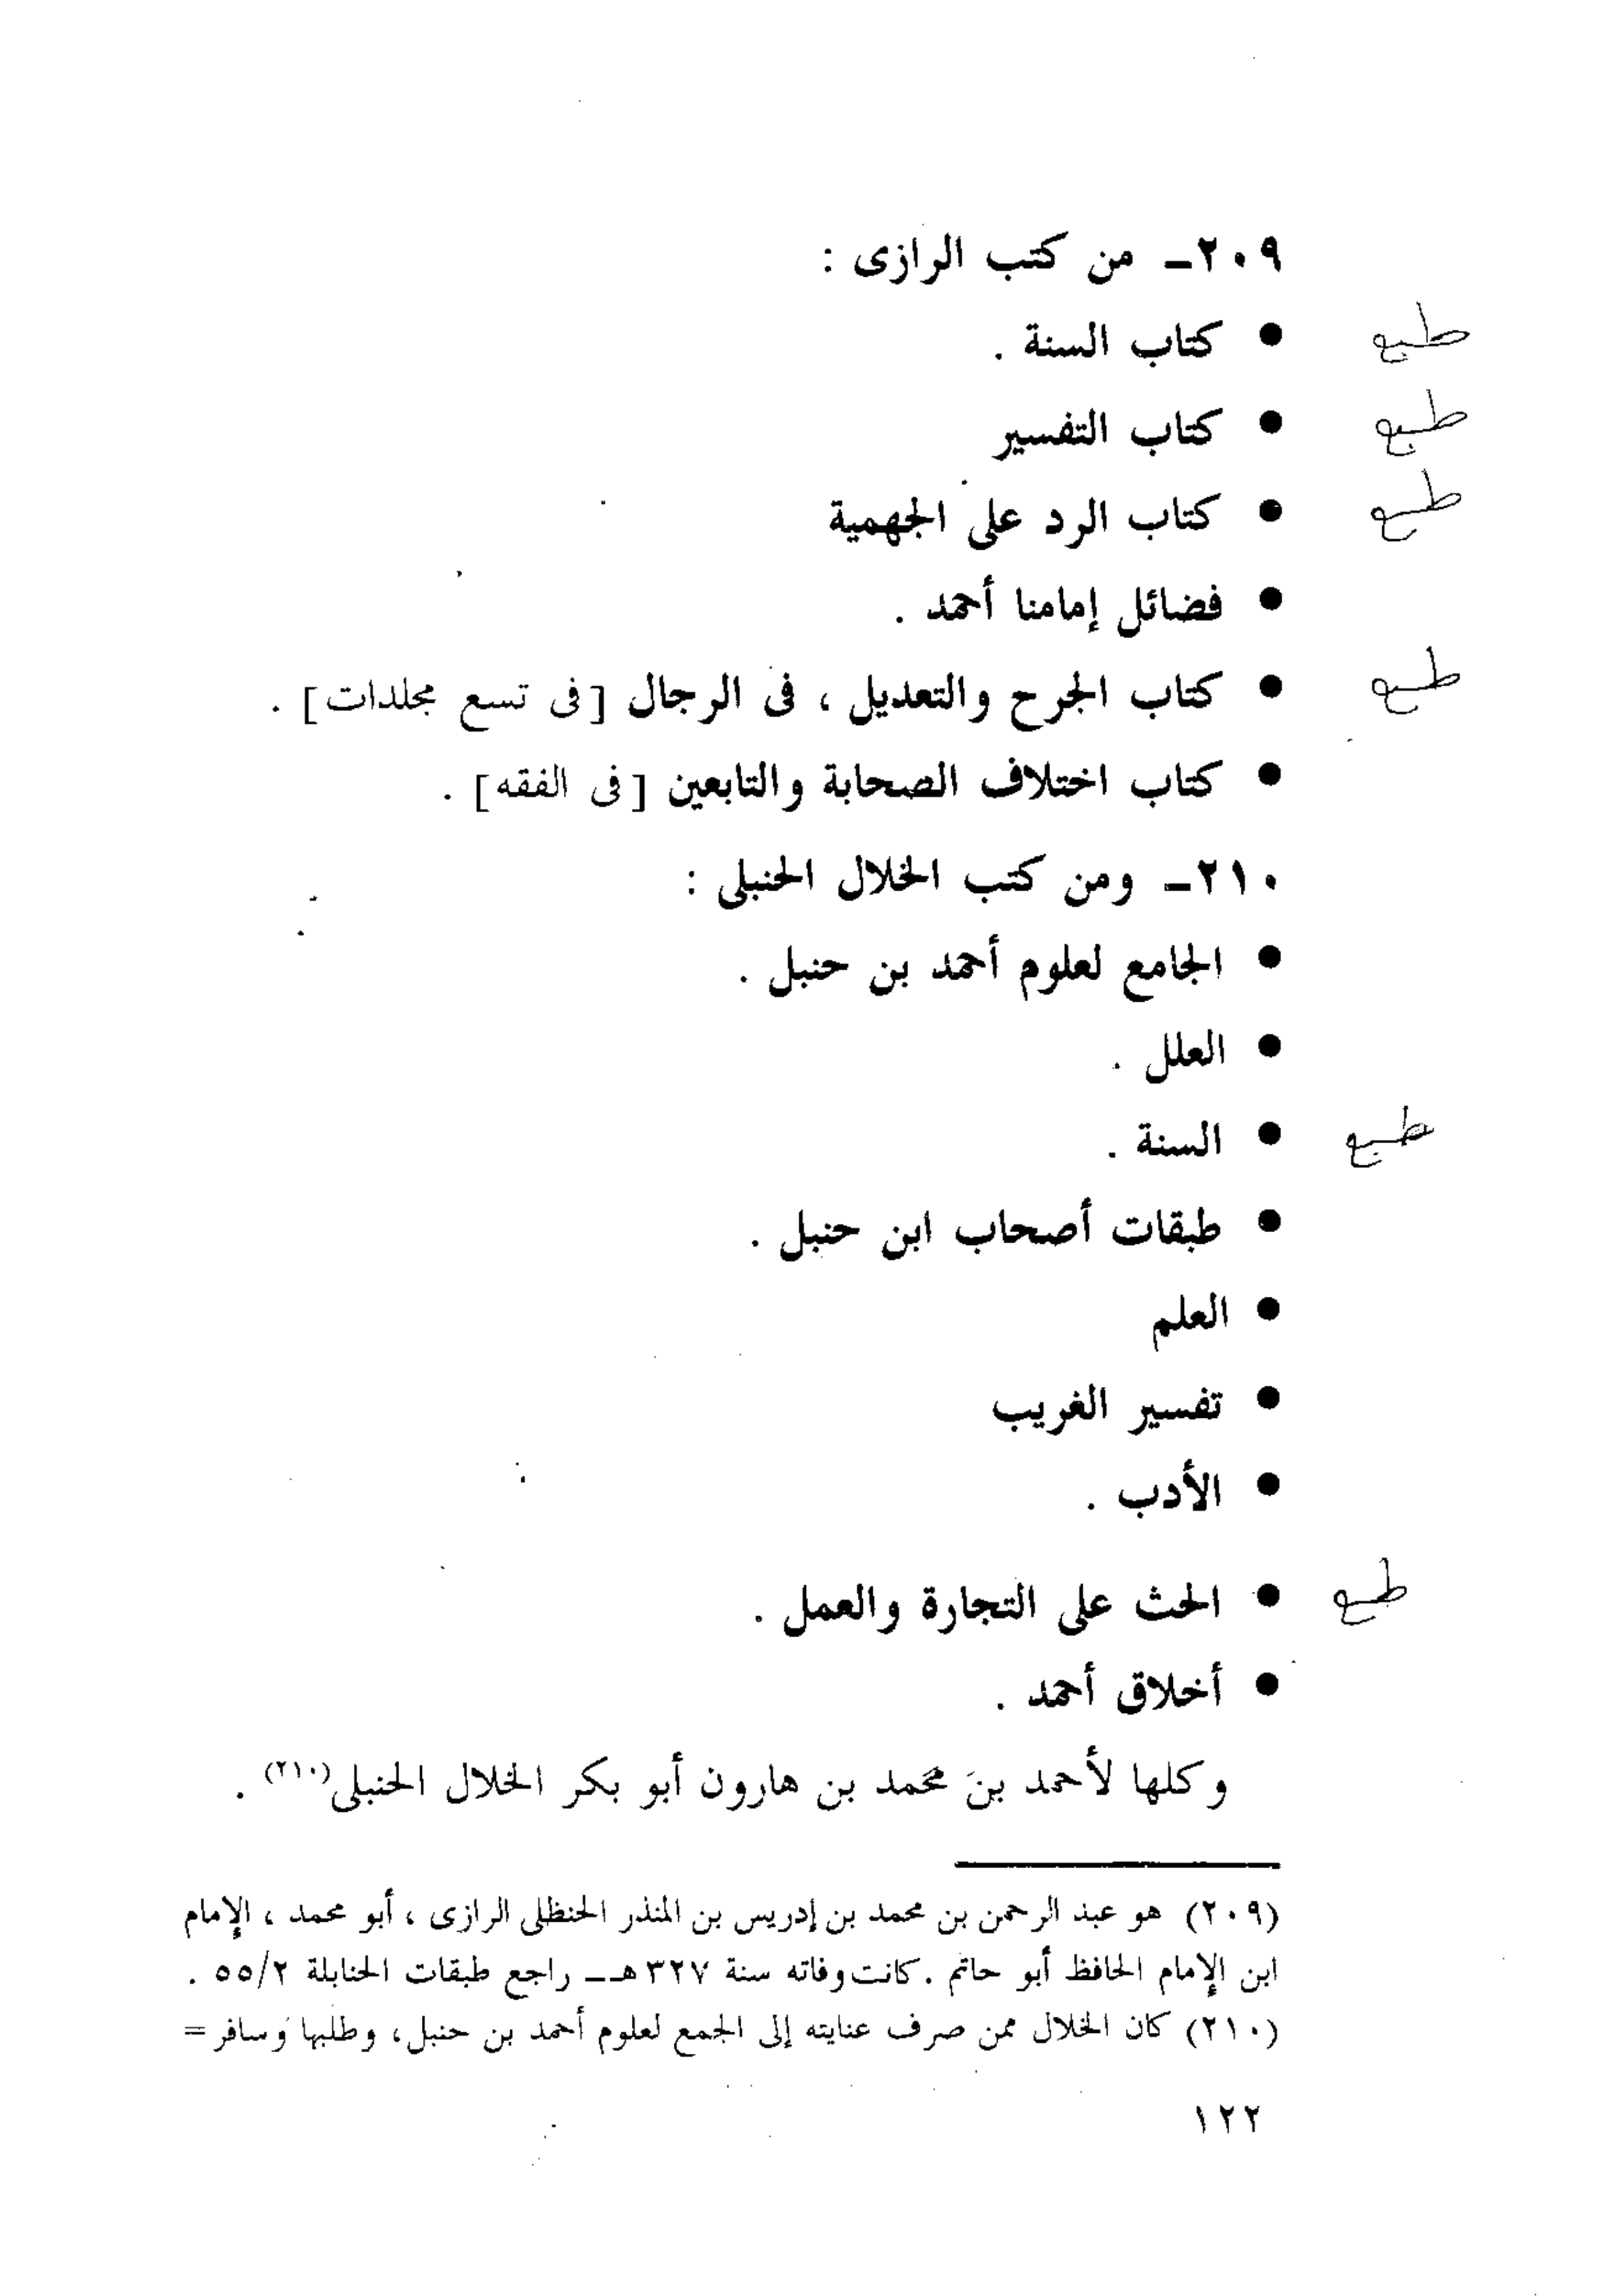 ٢٠٩ــ من كتب الرازى :
طبع ● كتاب السنة .
طبع ● كتاب التفسير
طبع ● كتاب الرد على الجهمية
● فضائل إمامنا أحمد .
طبع ● كتاب الجرح والتعديل ، فى الرجال [فى تسع مجلدات] .
● كتاب اختلاف الصحابة والتابعين [فى الفقه] .
٢١٠ــ ومن كتب الخلال الحنبلى :
● الجامع لعلوم أحمد بن حنبل .
● العلل .
طبع ● السنة .
● طبقات أصحاب ابن حنبل .
● العلم
● تفسير الغريب
● الأدب .
طبع ● الحث على التجارة والعمل .
● أخلاق أحمد .
وكلها لأحمد بن محمد بن هارون أبو بكر الخلال الحنبلى(٢١٠) .
(٢٠٩) هو عبد الرحمن بن محمد بن إدريس بن المنذر الحنظلى الرازى ، أبو محمد ، الإمام
ابن الإمام الحافظ أبو حاتم . كانت وفاته سنة ٣٢٧ هــ راجع طبقات الحنابلة ٥٥/٢ .
(٢١٠) كان الخلال ممن صرف عنايته إلى الجمع لعلوم أحمد بن حنبل، وطلبها وسافر =
١٢٢